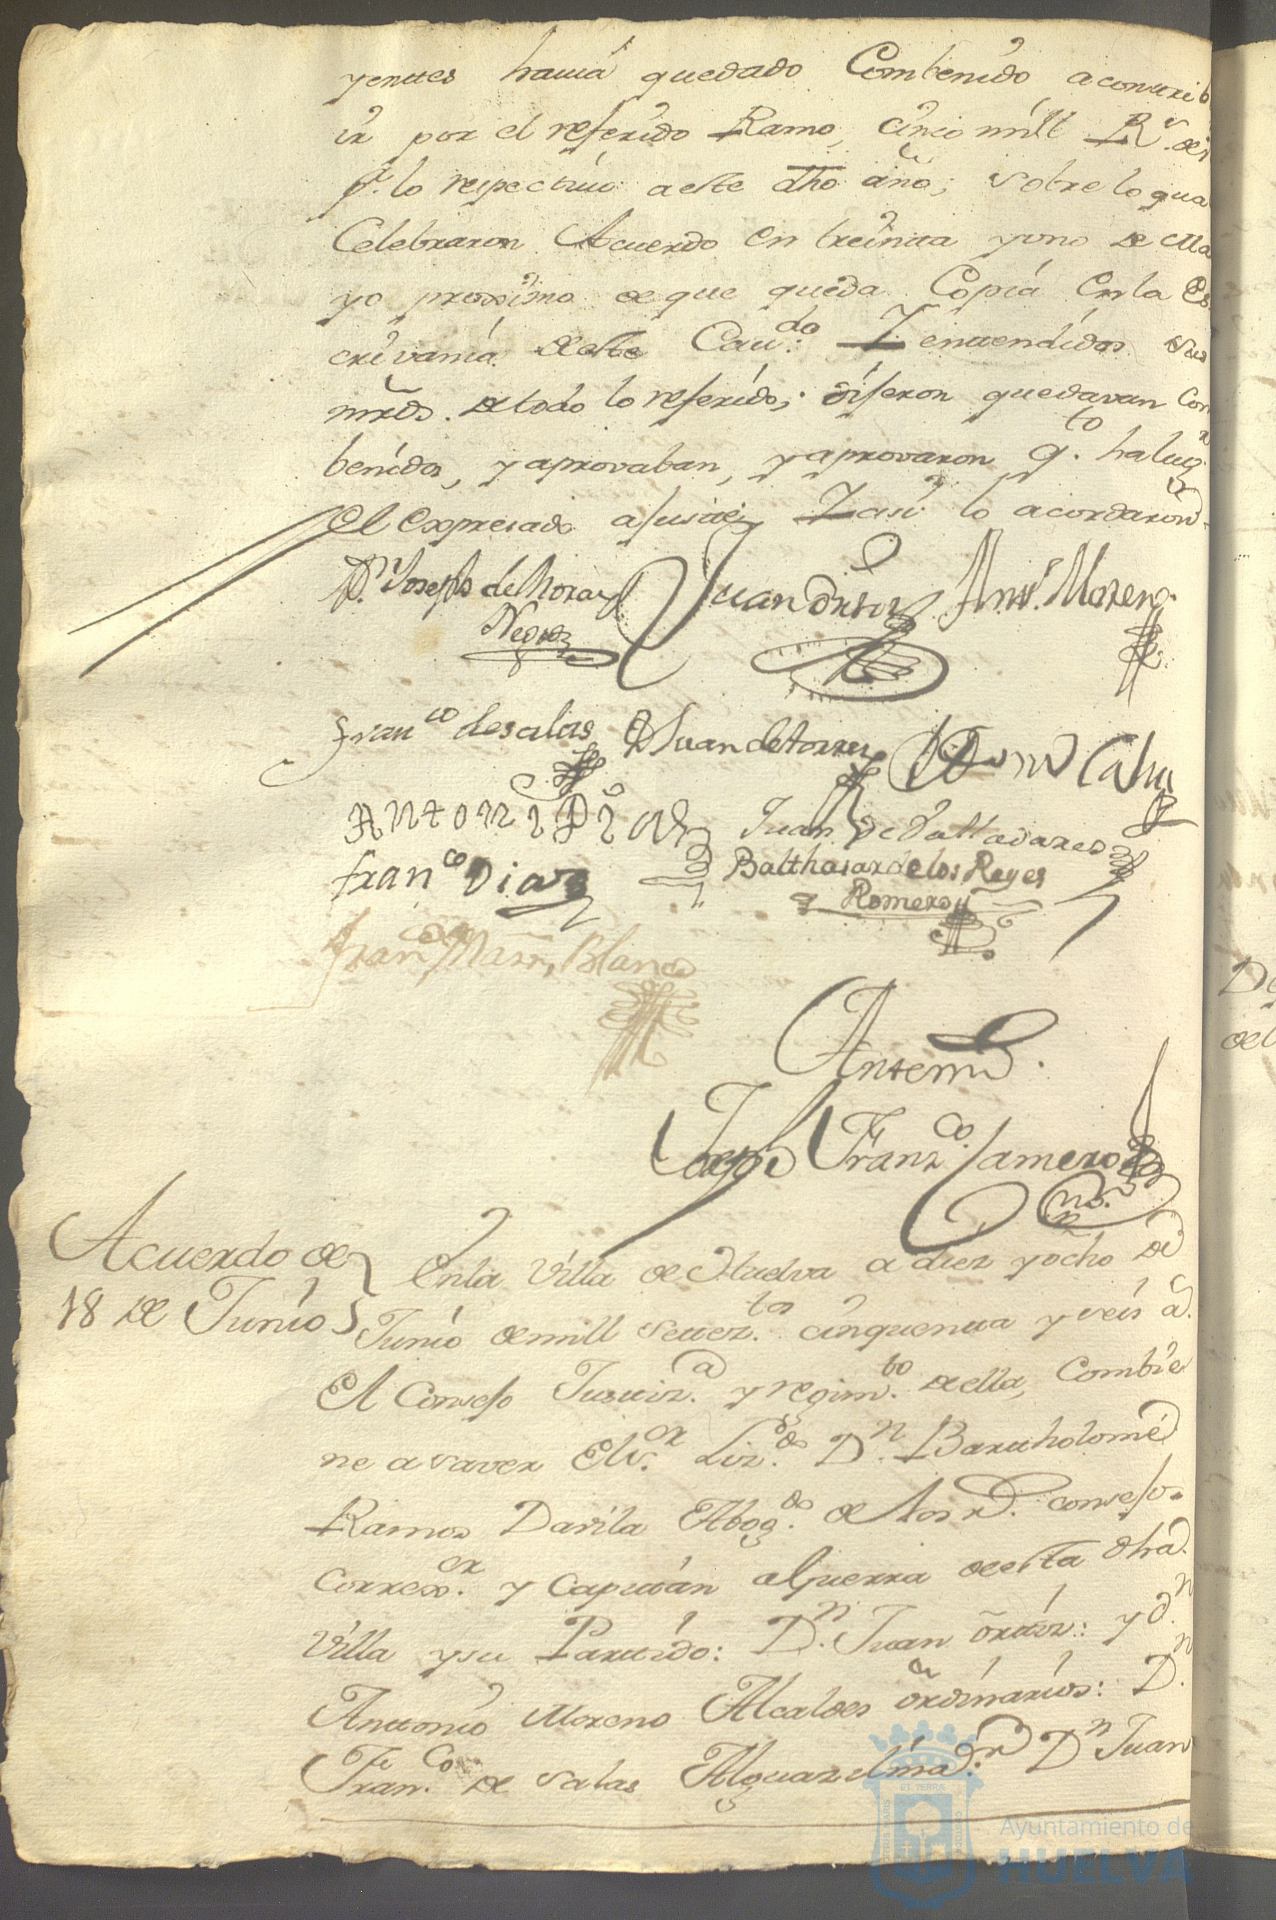 yentes havia quedado Combenido a contrib
ir por el referido Ramo, cinco mill Rs. de v
pr. lo respectivo a este dho año; sobre lo qua
Celebraron Acuerdo en treinta y uno de Ma
yo proximo de que queda Copia en la Es
crivania deste Cavdo: Y entendidos sus
mrds. de todo lo referido; dijeron quedavan Con
benidos, y aprovaban, y aprovaron qto. ha lugr
El expresado ajuste; Y asi lo acordaron
Dn. Joseph de Mora y
Negro
Juan Ortiz
Anto. Moreno
Franco de salas
Juan de torres
Antoni
Juan de Valladares
Franco Diaz
Balthasar de los Reyes
Romero
Franco Marn, Blanco
Antemi.
Joseph Franco Camero
no.
Acuerdo de
18 de Junio
En la Villa de Huelva a diez y ocho de
Junio de mill seteztos. cinquenta y seis as.
El Consejo Justiza. y regimto. de ella, combie
ne a saver El sor. Lizdo. Dn. Bartholome
Ramos Davila Abogdo. de los rs. consejos.
Correxor. y Capitan a Guerra de esta dha.
Villa y su Partido: Dn. Juan ortiz: y dn.
Antonio Moreno Alcaldes ordinarios: Dn.
Franco. de salas Alguazil mar. Dn Juan
ET TERRA
Ayuntamiento de
HUELVA